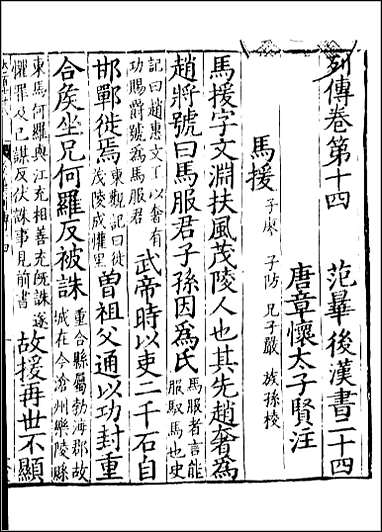 列傳卷第十四 范曅 後漢書二十四
唐章懷太子賢注
馬援 子廖 子防 兄子嚴 族孫棱
馬援字文淵扶風茂陵人也其先趙奢爲
趙將號曰馬服君子孫因爲氏 馬服者言能服馭馬也史
記曰趙惠文王以奢有功賜爵號爲馬服君 武帝時以吏二千石自
邯鄲徙焉 東觀記曰徙茂陵成懽里 曽祖父通以功封重
合矦坐兄何羅反被誅 重合縣屬勃海郡故城在今滄州樂陵縣
東馬何羅與江充相善充旣誅遂懼罪及已謀反伏誅事見前書 故援再世不顯